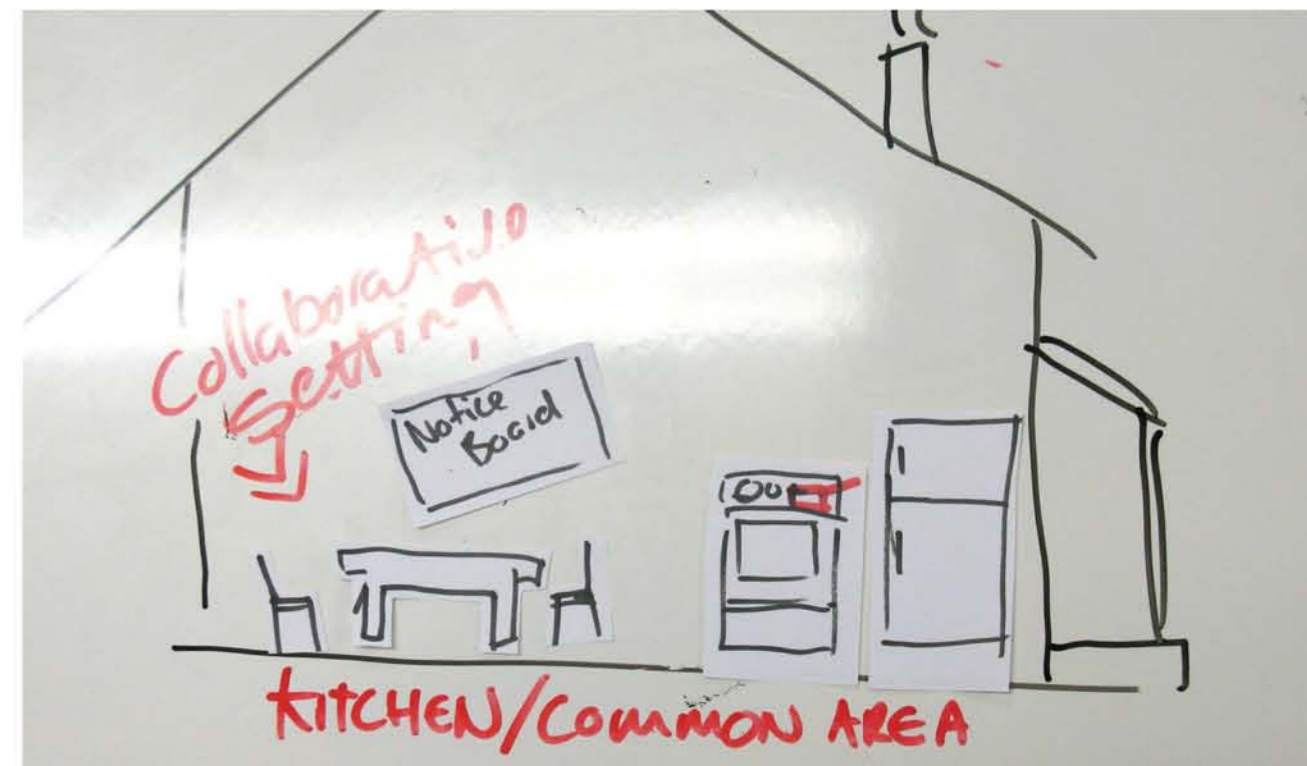 Collaborative
Setting
Notice
Board
KITCHEN/COMMON AREA